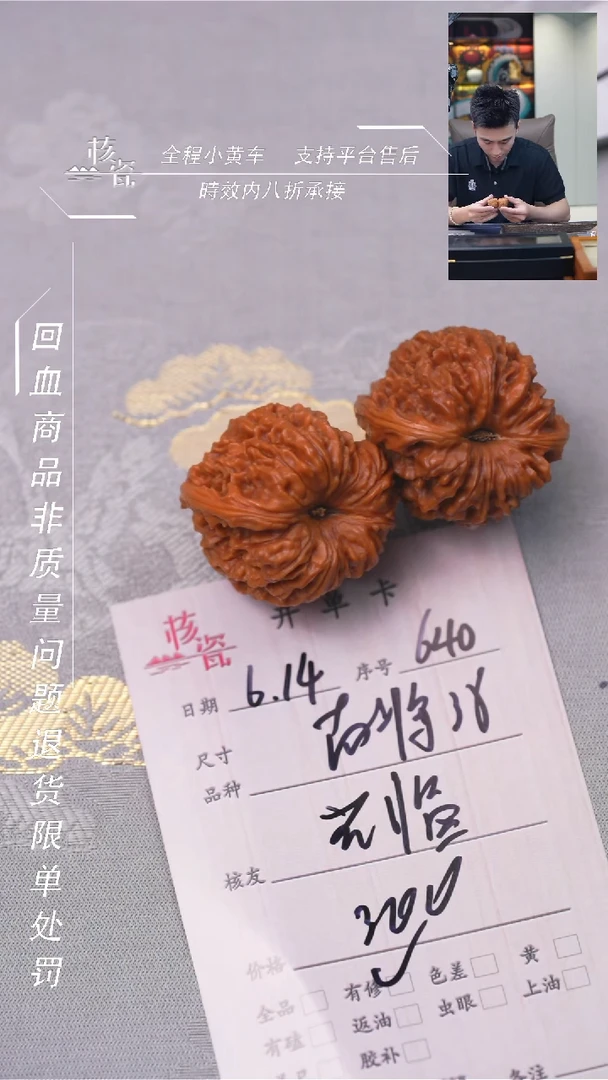 核瓷
全程小黄车 支持平台售后
時效内八折承接
回血商品非质量问题退货限单处罚
开单卡
核瓷
日期 6.14 序号 640
尺寸
品种
核友
300
价格
全品 有修 色差 黄
有磕 返油 虫眼 上油
胶补
备注